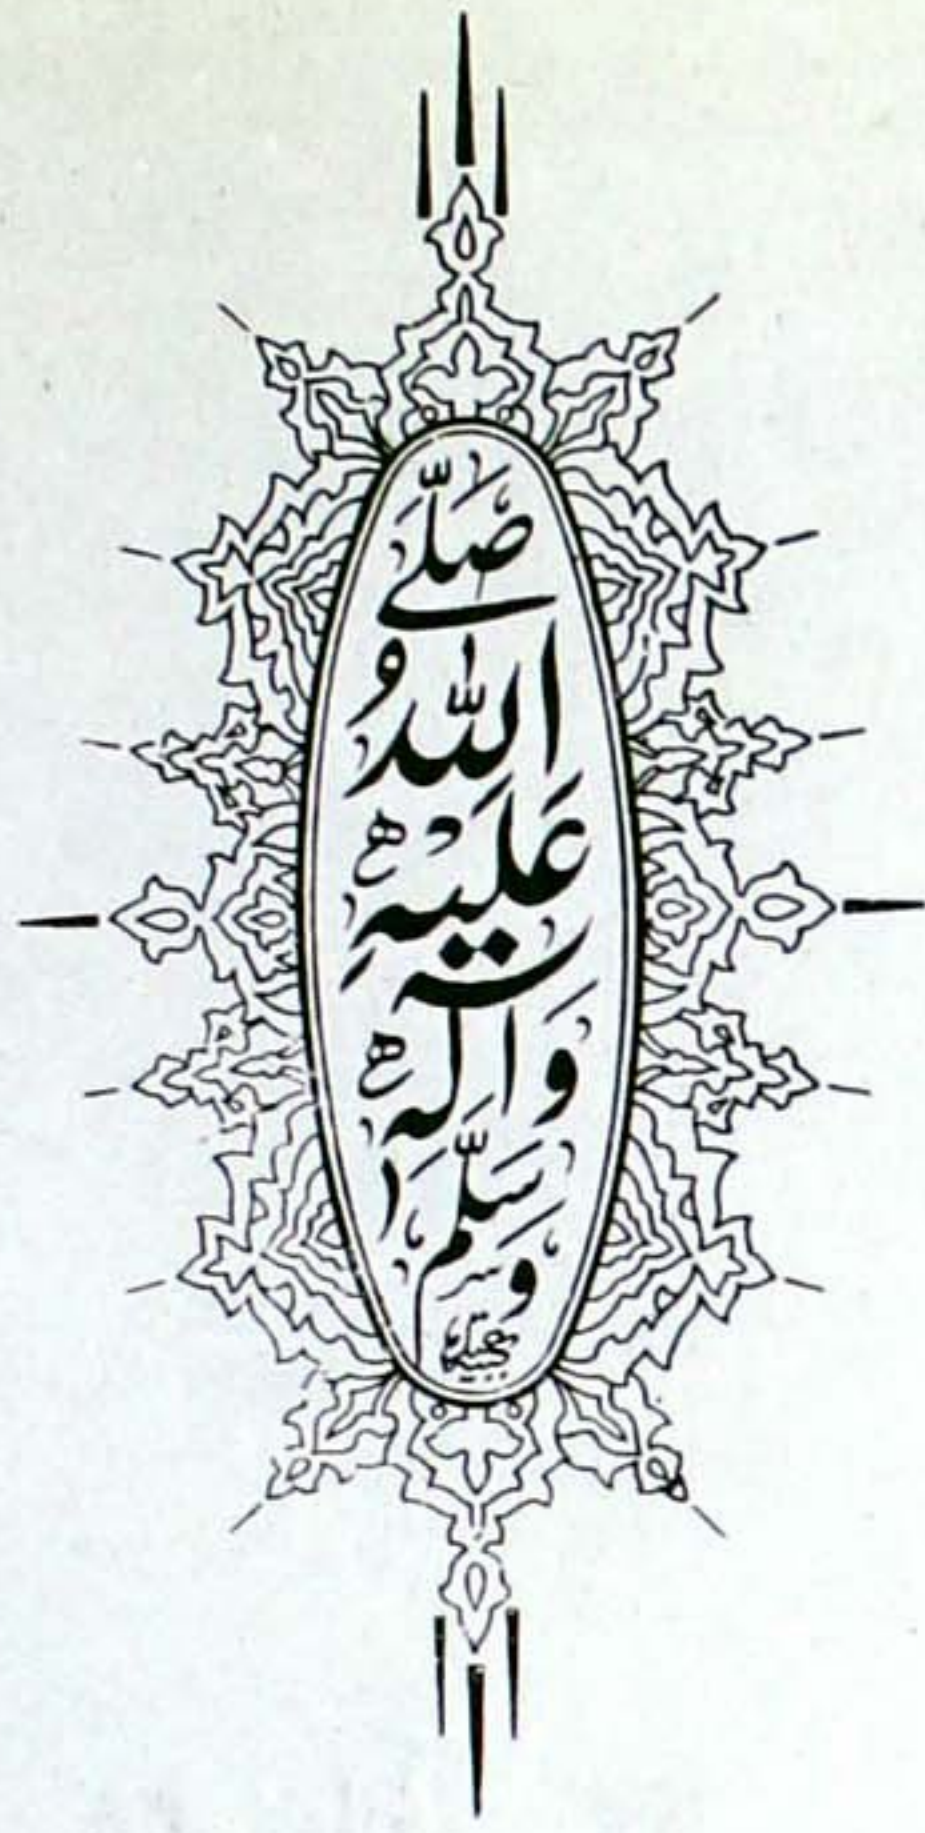 صَلَّى
اللّٰهُ
عَلَيْهِ
وَاٰلِهٖ
وَسَلَّمَ